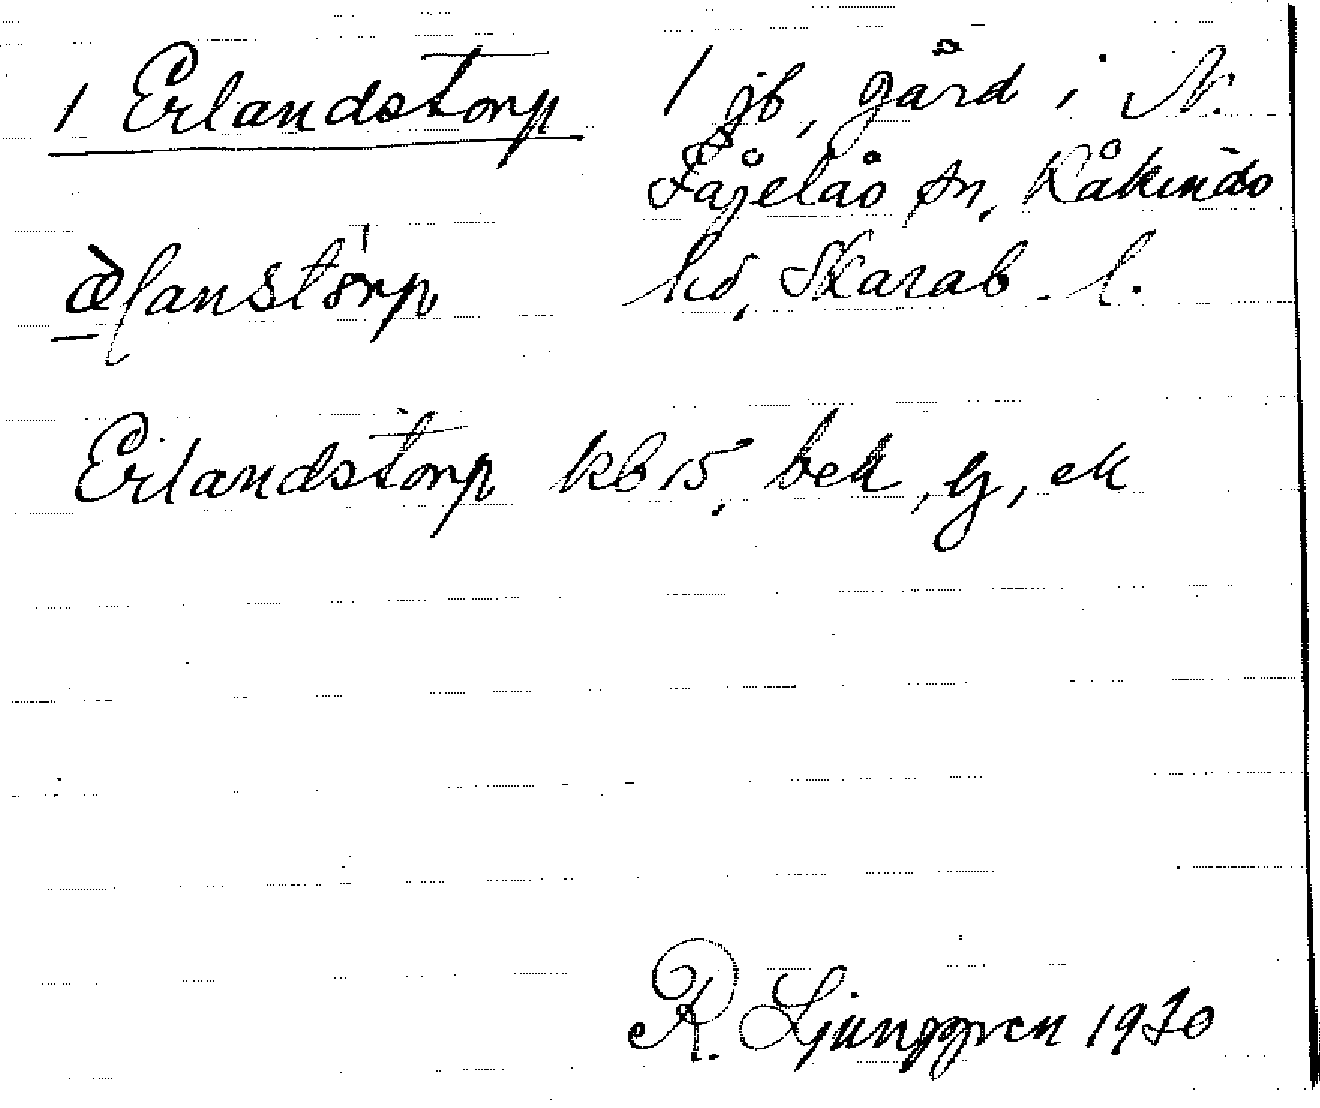 1 Erlandstorp 1 jb, gård i N.
Fågelås sn, Kåkinds
hd, Skarab. l.
Erlandstorp kb 15, bek, G, eK
R. Ljunggren 1920